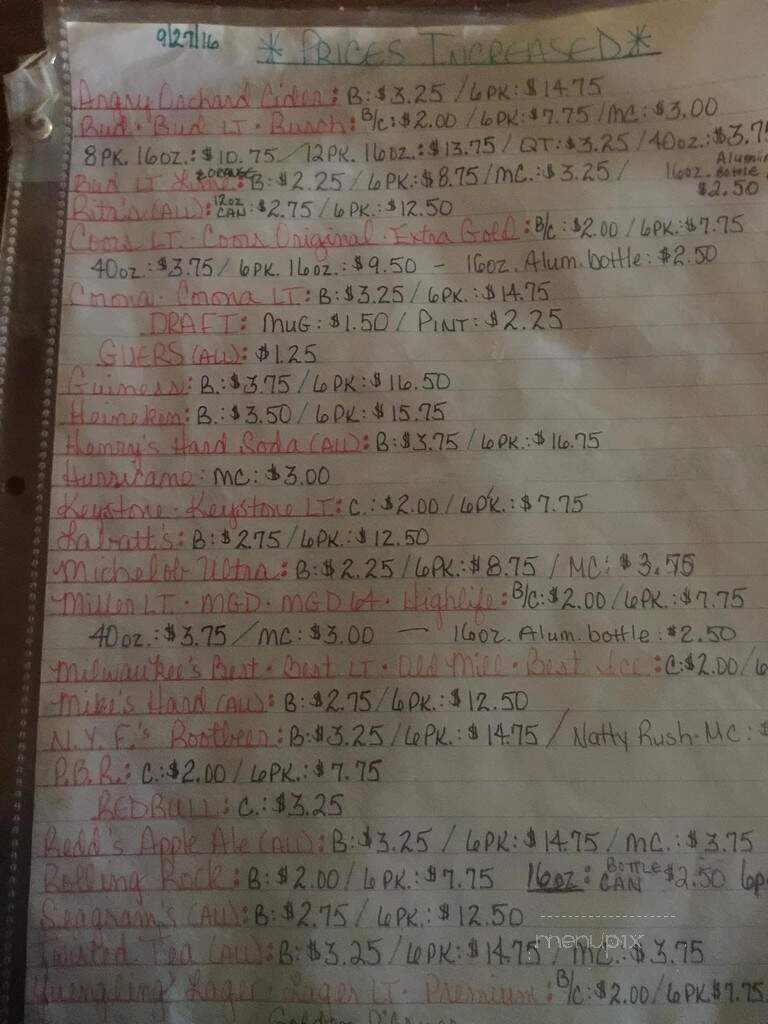 9/27/16 * PRICES INCREASED *
Angry Orchard Cider: B: $3.25 / 6PK: $14.75
Bud · Bud LT · Busch: B/C: $2.00 / 6PK: $7.75 / MC: $3.00
8PK. 16oz.: $10.75 / 12PK. 16oz.: $13.75 / QT: $3.25 / 40oz.: $3.75
Bud LT Lime & ORANGE: B: $2.25 / 6PK: $8.75 / MC.: $3.25 / 16oz. Bottle $2.50
Rita's (ALL): 12oz CAN: $2.75 / 6PK.: $12.50
Coors LT · Coors Original · Extra Gold: B/C: $2.00 / 6PK.: $7.75
40oz.: $3.75 / 6PK. 16oz.: $9.50 - 16oz. Alum. bottle: $2.50
Corona · Corona LT: B: $3.25 / 6PK.: $14.75
DRAFT: MUG: $1.50 / PINT: $2.25
GUERS (ALL): $1.25
Guiness: B.: $3.75 / 6PK: $16.50
Heineken: B.: $3.50 / 6PK: $15.75
Henry's Hard Soda (ALL): B: $3.75 / 6PK.: $16.75
Hurricane: MC: $3.00
Keystone · Keystone LT: C.: $2.00 / 6PK.: $7.75
Labatt's: B: $2.75 / 6PK.: $12.50
Michelob Ultra: B: $2.25 / 6PK: $8.75 / MC: $3.75
Miller LT · MGD · MGD 64 · Highlife: B/C: $2.00 / 6PK: $7.75
40oz.: $3.75 / MC: $3.00 — 16oz. Alum. bottle: $2.50
Milwaukee's Best · Best LT · Old Mill · Best Ice: C: $2.00/6
Mike's Hard (ALL): B: $2.75 / 6PK.: $12.50
N.Y.F.'s Rootbeer: B: $3.25 / 6PK.: $14.75 / Natty Rush - MC: $
P.B.R.: C.: $2.00 / 6PK.: $7.75
REDBULL: C.: $3.25
Redd's Apple Ale (ALL): B: $3.25 / 6PK: $14.75 / MC.: $3.75
Rolling Rock: B: $2.00 / 6PK.: $7.75 16oz: BOTTLE CAN $2.50 6p
Seagram's (ALL): B: $2.75 / 6PK.: $12.50
menupix
Twisted Tea (ALL): B: $3.25 / 6PK: $14.75 / MC.: $3.75
Yuengling Lager · Lager LT · Premium: B/C: $2.00 / 6PK $7.75